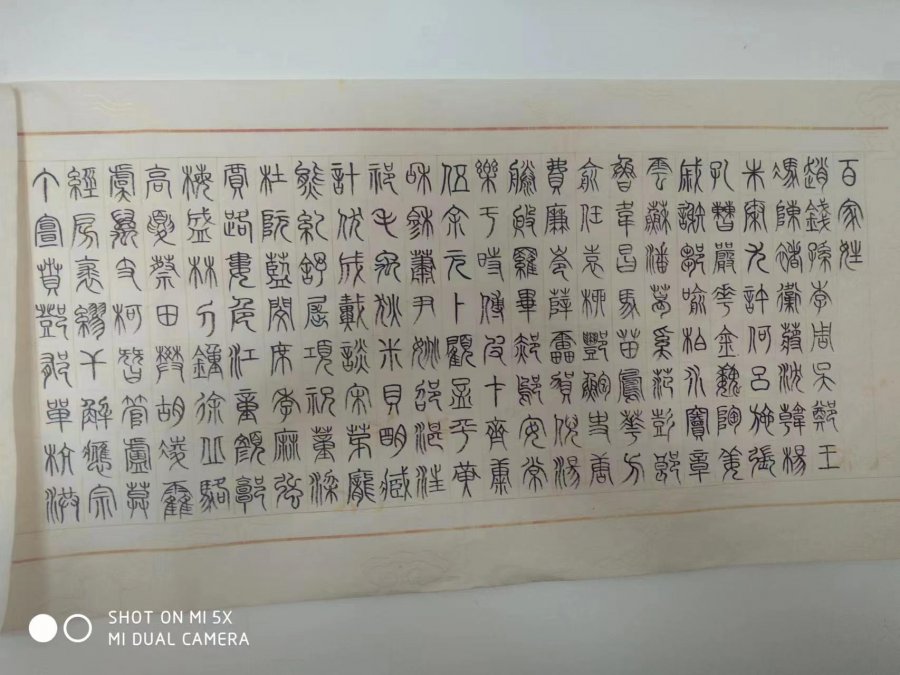 百家姓
趙錢孫李周吳鄭王
馮陳褚衛蔣沈韓楊
朱秦尤許何呂施張
孔曹嚴華金魏陶姜
戚謝鄒喻柏水竇章
雲蘇潘葛奚范彭郎
魯韋昌馬苗鳳花方
俞任袁柳酆鮑史唐
費廉岑薛雷賀倪湯
滕殷羅畢郝鄔安常
樂于時傅皮卞齊康
伍余元卜顧孟平黃
和穆蕭尹姚邵湛汪
祁毛禹狄米貝明臧
計伏成戴談宋茅龐
熊紀舒屈項祝董梁
杜阮藍閔席季麻強
賈路婁危江童顏郭
梅盛林刁鍾徐丘駱
高夏蔡田樊胡凌霍
虞萬支柯昝管盧莫
經房裘繆干解應宗
丁宣賁鄧郁單杭洪
SHOT ON MI 5X
MI DUAL CAMERA